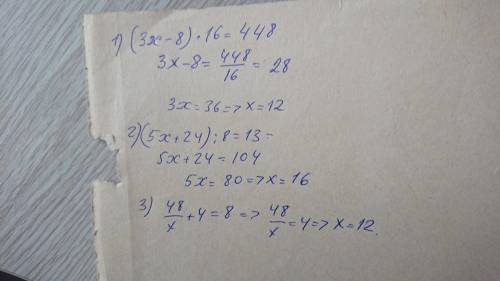 1) (3x-8)·16=448
3x-8=448/16=28
3x=36=>x=12
2)(5x+24):8=13-
5x+24=104
5x=80=>x=16
3) 48/x+4=8=>48/x=4=>x=12.